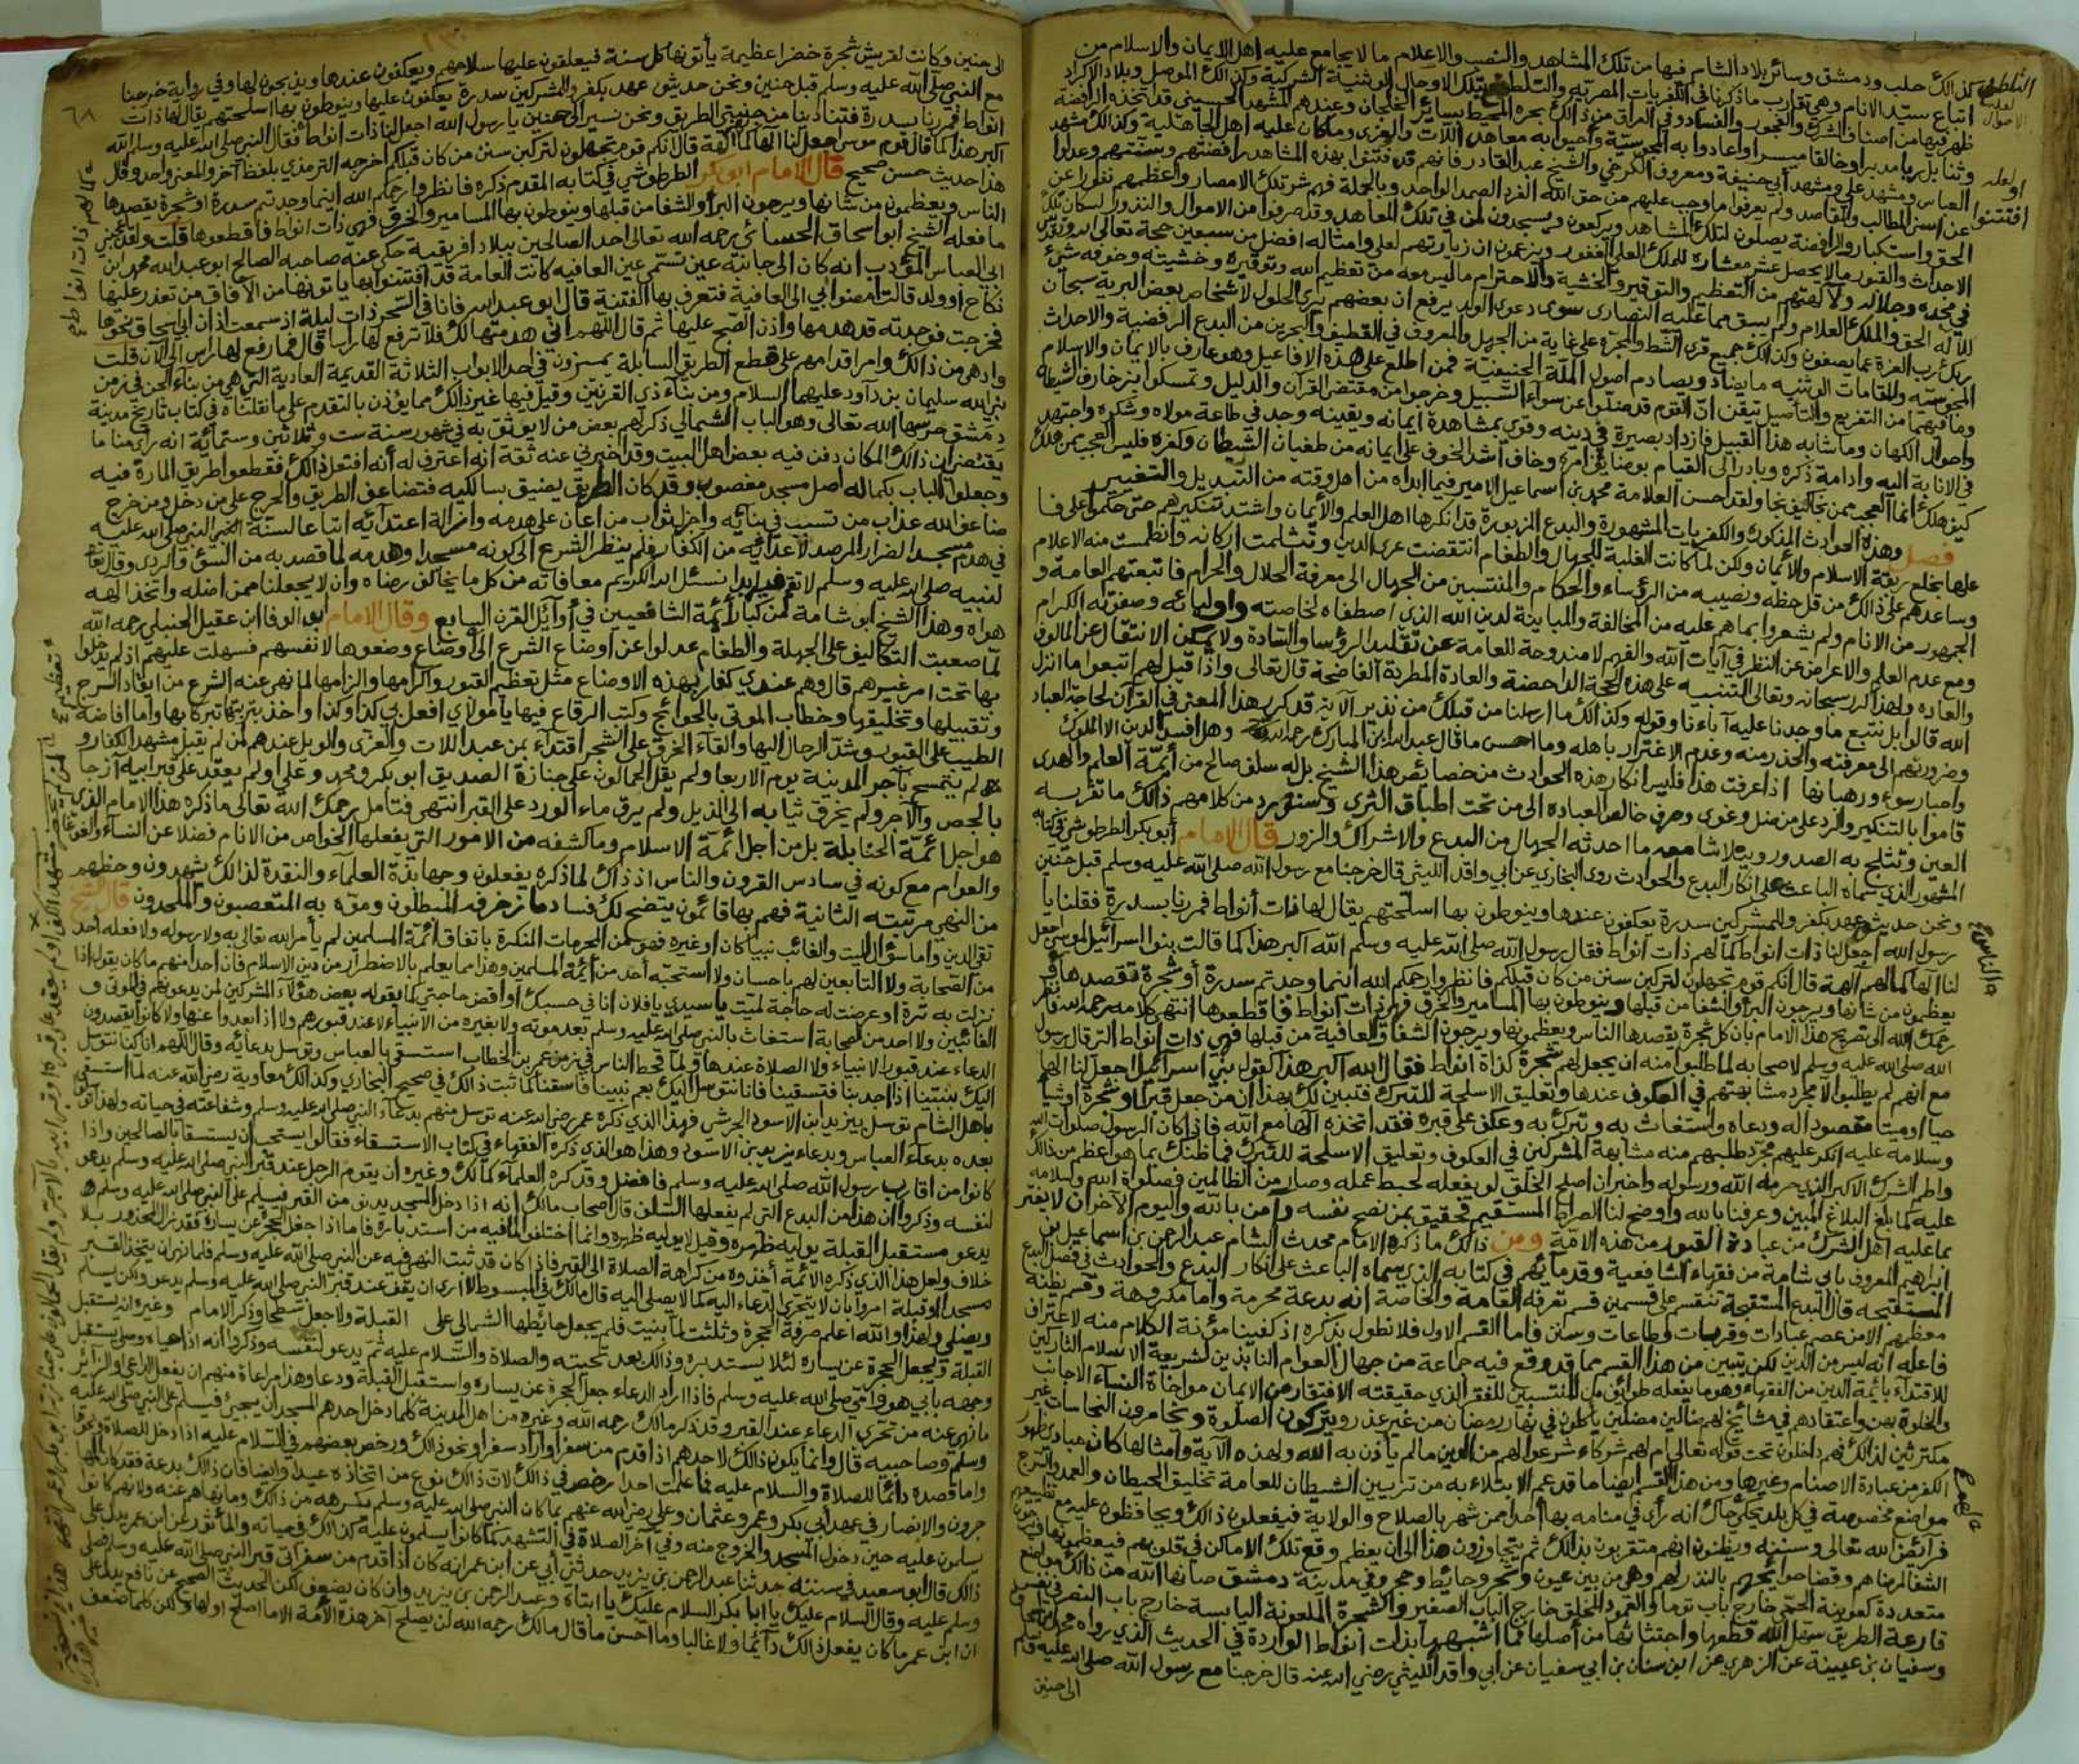 وكذلك حلب ودمشق وسائر بلاد الشام فيها من تلك المشاهد والنصب والاعلام ما لا يجامع عليه اهل الايمان والاسلام من
اتباع سيد الانام وهي تقارب ما ذكرنا في الكفريات المصرية والتلطخ بتلك الاحوال الوثنية الشركية وكذلك الموصل وبلاد الاكراد
ظهر فيها من اصناف الشرك والفجور والفساد وفي العراق من ذلك بحره المحيط بسائر الخلجان وعندهم المشهد الحسيني قد اتخذه الرافضة
وثنا بل ربا مدبرا وخالقا ميسرا واعادوا به المجوسية واحيوا به معاهد اللات والعزى وما كان عليه اهل الجاهلية وكذلك مشهد
العباس ومشهد علي ومشهد أبي حنيفة ومعروف الكرخي والشيخ عبد القادر فانهم قد فتنوا بهذه المشاهد رافضتهم وسنتهم وعدلوا
عن اسنى المطالب والمقاصد ولم يعرفوا ما وجب عليهم من حق الله الفرد الصمد الواحد وبالجملة فهم شر تلك الامصار واعظمهم نفورا عن
الحق واستكبارا والرافضة يصلون لتلك المشاهد ويركعون ويسجدون لمن في تلك المعاهد وقد صرفوا من الاموال والنذور لسكان تلك
الاحداث والقبور ما لا يحصل عشر معشاره للملك العلي الغفور ويزعمون ان زيارتهم لعلي وامثاله افضل من سبعين حجة تعالى الله وتقدس
في مجده وجلاله ولآلهتهم من التعظيم والتوقير والخشية والاحترام ما ليس معه من تعظيم الله وتوقيره وخشيته وخوفه شيء
للاله الحق والملك العلام ولم يبق مما عليه النصارى سوى دعوى الولد يرفع ان بعضهم يرى الحلول لاشخاص بعض البرية سبحان
ربك رب العزة عما يصفون وكذلك جميع قرى الشط والمجرة على غاية من الجهل والمعروف في القطيف والبحرين من البدع الرافضية والاحداث
المجوسية والمقامات الوثنية ما يضاد ويصادم اصول الملة الحنيفية فمن اطلع على هذه الافاعيل وهو عارف بالايمان والاسلام
وما فيهما من التفريع والتأصيل تيقن ان القوم قد ضلوا عن سواء السبيل وخرجوا من مقتضى القرآن والدليل وتمسكوا بزخارف الشيطان
واحوال الكهان وما شابه هذا القبيل فازداد بصيرة في دينه وقوي بمشاهدة ايمانه ويقينه وجد في طاعة مولاه وشكره واجتهد
في الانابة اليه وادامة ذكره وبادر الى القيام بوضائف امره وخاف اشد الخوف على ايمانه من طغيان الشيطان وكفره فليس العجب ممن هلك
كيف هلك انما العجب ممن نجا كيف نجا ولقد احسن العلامة محمد بن اسماعيل الامير فيما ابداه من اهل وقته من التبديل والتغيير
فصل وهذه الحوادث المذكورة والكفريات المشهورة والبدع المزبورة قد انكرها اهل العلم والأيمان واشتد تنكيرهم حتى حكموا على فا
علها بخلع ربقة الاسلام والأيمان ولكن لما كانت الغلبة للجهال والطغام انتقضت عرى الدين وتثلمت اركانه وانطمست منه الاعلام
وساعدهم على ذلك من قل حظه ونصيبه من الرؤساء والحكام والمنتسبين من الجهال الى معرفة الحلال والحرام فاتبعتهم العامة و
الجمهور من الانام ولم يشعروا بما هم عليه من المخالفة والمباينة لدين الله الذي اصطفاه لخاصته واوليائه وصفوته الكرام
ومع عدم العلم والاعراض عن النظر في آيات الله والفهم لا مندوحة للعامة عن تقليد الرؤسا والسادة ولا يمكن الانتقال عن المألوف
والعاده ولهذا كرر سبحانه وتعالى التنبيه على هذه الحجة الداحضة والعادة المطردة الفاضحة قال تعالى واذا قيل لهم اتبعوا ما انزل
الله قالوا بل نتبع ما وجدنا عليه آباءنا وقوله وكذلك ما ارسلنا من قبلك من نذير الآية قد كرر هذا المعنى في القرآن لحاجة العباد
وضرورتهم الى معرفته والحذر منه وعدم الاغترار باهله وما احسن ما قال عبد الله ابن المبارك رحمه الله وهل افسد الدين الا الملوك
واحبار سوء ورهبانها اذا عرفت هذا فليس انكار هذه الحوادث من خصائص هذا الشيخ بل له سلف صالح من أئمة العلم والهدى
قاموا بالتنكير والرد على من ضل وغوى وصرف خالص العباده الى من تحت اطباق الثرى وسنورد من كلامهم ذلك ما تقر به
العين وتثلج به الصدور ويتلاشا معه ما احدثه الجهال من البدع والاشراك والزور قال الامام أبو بكر الطرطوشي في كتابه
المشهور الذي سماه الباعث على انكار البدع والحوادث روى البخاري عن أبي واقد الليثي قال خرجنا مع رسول الله صلى الله عليه وسلم قبل حنين
ونحن حديثو عهد بكفر وللمشركين سدرة يعكفون عندها وينوطون بها اسلحتهم يقال لها ذات أنواط فمررنا بسدرة فقلنا يا
رسول الله اجعل لنا ذات انواط كما لهم ذات أنواط فقال رسول الله صلى الله عليه وسلم الله اكبر هذا كما قالت بنوا اسرائيل لموسى اجعل
لنا الها كما لهم آلهة قال انكم قوم تجهلون لتركبن سنن من كان قبلكم فانظروا رحمكم الله اينما وجدتم سدرة أو شجرة يقصدها
يعظمون من شأنها ويرجون البرأ والشفا من قبلها وينوطون بها المسامير والخرق فهي ذات انواط فاقطعوها انتهى كلامه رحمه الله فانظر
رحمك الله الى تصريح هذا الامام بان كل شجرة يقصدها الناس ويعظمونها ويرجون الشفاء والعافية من قبلها فهي ذات انواط التي قال رسول
الله صلى الله عليه وسلم لاصحابه لما طلبوا منه ان يجعل لهم شجرة كذات انواط فقال الله اكبر هذا كقول بني اسرائيل اجعل لنا الها
مع انهم لم يطلبوا الا مجرد مشابهتهم في العكوف عندها وتعليق الاسلحة للتبرك فتبين لك بهذا ان من جعل قبرا او شجرة او شيأ
حيا او ميتا مقصودا له ودعاه واستغاث به وتبرك به وعكف على قبره فقد اتخذه الها مع الله فاذا كان الرسول صلوات الله
وسلامه عليه انكر عليهم مجرد طلبهم منه مشابهة المشركين في العكوف وتعليق الاسلحة للتبرك فما ظنك بما هو اعظم من ذلك
واطم الشرك الاكبر الذي حرمه الله ورسوله واخبر ان اصلح الخلق لو يفعله لحبط عمله وصار من الظالمين فصلوات الله وسلامه
عليه كما بلغ البلاغ المبين وعرفنا بالله واوضح لنا الصراط المستقيم فحقيق بمن نصح نفسه وآمن بالله واليوم الآخر ان لا يغتر
بما عليه اهل الشرك من عبادة القبور من هذه الامة ومن ذلك ما ذكره الامام محدث الشام عبد الرحمن بن اسماعيل بن
ابراهيم المعروف بابي شامة من فقهاء الشافعية وقدمائهم في كتابه الذي سماه الباعث على انكار البدع والحوادث في فصل البدع
المستقبحة قال البدع المستقبحة تنقسم على قسمين قسم تعرفه العامة والخاصة أنه بدعة محرمة واما مكروهة وقسم يظنه
معظمهم الا من عصم عبادات وقربات وطاعات وسنن فاما القسم الاول فلا نطول بذكره اذ كفينا مؤنة الكلام منه لاعتراف
فاعله انه ليس من الدين لكن نبين من هذا القسم مما قد وقع فيه جماعة من جهال العوام النابذين لشريعة الاسلام التاركين
للاقتداء بائمة الدين من الفقهاء وهو ما يفعله طوائف من المنتسبين للفقر الذي حقيقته الافتقار من الايمان مواخاة النساء الاجانب
والخلوة بهن واعتقادهم في مشائخ لهم ضالين مضلين يأكلون في نهار رمضان من غير عذر ويتركون الصلوة ويخامرون النجاسات غير
مكترثين لذلك فهم داخلون تحت قوله تعالى ام لهم شركاء شرعوا لهم من الدين ما لم يأذن به الله ولهذه الآية وامثالها كان مبادئ ظهور
الكفر من عبادة الاصنام وغيرها ومن هذا القسم ايضا ما قد عم الابتلاء به من تزيين الشيطان للعامة تخليق الحيطان والعمد والسرج
مواضع مخصوصة في كل بلد يحكي حاك انه رأى في منامه بها احدا ممن شهر بالصلاح والولاية فيفعلون ذلك ويحافظون عليه مع تضييعهم
فرائض الله تعالى وسننه ويظنون انهم متقربون بذلك ثم يتجاوزون هذا الى ان يعظم وقع تلك الاماكن في قلوبهم فيعظمونها
الشفا لمرضاهم وقضا حوائجهم بالنذر لهم وهي من بين عيون وشجر وحائط وحجر وفي مدينة دمشق صانها الله من ذلك مواضع
متعددة كعوينة الحمى خارج باب توما والعمود المخلق خارج الباب الصغير والشجرة الملعونة اليابسة خارج باب النصر في نفس
قارعة الطريق سهل الله قطعها واجتثاثها من اصلها فما اشبهها بذات انواط الواردة في الحديث الذي رواه محمد بن اسحاق
وسفيان بن عيينة عن الزهري عن ابن سنان بن ابي سفيان عن أبي واقد الليثي رضي الله عنه قال خرجنا مع رسول الله صلى الله عليه وسلم
الى حنين
٦٨
الى حنين وكانت لقريش شجرة خضرا عظيمة يأتونها كل سنة فيعلقون عليها سلاحهم ويعكفون عندها ويذبحون لها وفي رواية خرجنا
مع النبي صلى الله عليه وسلم قبل حنين ونحن حديثو عهد بكفر وللمشركين سدرة يعكفون عليها وينوطون بها اسلحتهم يقال لها ذات
انواط فمررنا بسدرة فتنادينا من جنبتي الطريق ونحن نسير الى حنين يا رسول الله اجعل لنا ذات أنواط فقال النبي صلى الله عليه وسلم الله
اكبر هذا كما قال قوم موسى اجعل لنا الها كما لهم آلهة قال انكم قوم تجهلون لتركبن سنن من كان قبلكم اخرجه الترمذي بلفظ آخر والمعنى واحد وقال
هذا حديث حسن صحيح قال الامام ابو بكر الطرطوشي في كتابه المقدم ذكره فانظروا رحمكم الله اينما وجدتم سدرة او شجرة يقصدها
الناس ويعظمون من شأنها ويرجون البرأ والشفا من قبلها وينوطون بها المسامير والخرق فهي ذات انواط فاقطعوها قلت ولقد اعجبني
ما فعله الشيخ ابو اسحاق الجبنياني رحمه الله تعالى احد الصالحين ببلاد افريقية حكى عنه صاحبه الصالح ابو عبد الله محمد ابن
ابي العباس المؤدب انه كان الى جانبه عين تسمى عين العافيه كانت العامة قد افتتنوا بها يأتونها من الآفاق من تعذر عليها
نكاح او ولد قالت امضوا بي الى العافية فتعرف بها الفتنة قال ابو عبد الله فانا في السحر ذات ليلة اذ سمعت اذان ابي اسحاق نحوها
فخرجت فوجدته قد هدمها واذن الصبح عليها ثم قال اللهم اني هدمتها لك فلا ترفع لها رأسا قال فما رفع لها رأس الى الآن قلت
وادهى من ذلك وامر اقدامهم على قطع الطريق السابلة يمرون في احد الابواب الثلاثة القديمة العادية التي هي من بناء الجن في زمن
نبي الله سليمان بن داود عليهما السلام ومن بناء ذي القرنين وقيل فيها غير ذلك مما يؤذن بالتقدم على ما نقلناه في كتاب تاريخ مدينة
دمشق حرسها الله تعالى وهو الباب الشمالي ذكر لهم بعض من لا يوثق به في شهور سنة ست وثلاثين وستمائة انه رأى مناما
يقتضي ان ذلك المكان دفن فيه بعض اهل البيت وقد اخبرني عنه ثقة انه اعترف له انه افتعل ذلك فقطعوا طريق المارة فيه
وجعلوا الباب بكماله اصل مسجد مغصوب وقد كان الطريق يضيق بسالكيه فتضاعف الطريق والحرج على من دخل ومن خرج
ضاعف الله عذاب من تسبب في بنائه واجزل ثواب من اعان على هدمه وازالة اعتدائه اتباعا لسنة النبي صلى الله عليه
في هدم مسجد الضرار المرصد لاعدائه من الكفار فلم ينظر الشرع الى كونه مسجدا وهدمه لما قصد به من السوء والردى وقال تعالى
لنبيه صلى الله عليه وسلم لا تقم فيه ابدا نسئل الله الكريم معافاته من كل ما يخالف رضاه وان لا يجعلنا ممن اضله واتخذ الهه
هواه وهذا الشيخ ابو شامة من كبار أئمة الشافعيين في أوائل القرن السابع وقال الامام ابو الوفا ابن عقيل الحنبلي رحمه الله
لما صعبت التكاليف على الجهلة والطغام عدلوا عن اوضاع الشرع الى أوضاع وضعوها لانفسهم فسهلت عليهم اذ لم يدخلوا
بها تحت امر غيرهم قال وهم عندي كفار بهذه الاوضاع مثل تعظيم القبور واكرامها والزامها لما نهى عنه الشرع من ايقاد السرج
وتقبيلها وتخليقها وخطاب الموتى بالحوائج وكتب الرقاع فيها يا مولاي افعل بي كذا وكذا واخذ تربتها تبركا بها وافاضة
الطيب على القبور وشد الرحال اليها والقاء الخرق على الشجر اقتداء بمن عبد اللات والعزى والويل عندهم لمن لم يقبل مشهد الكف او
لم يتمسح بآجر المدينة يوم الاربعا ولم يقل الحمالون على جنازة الصديق ابو بكر ومحمد وعلي او لم يعقد على قبر ابيه أزجا
بالجص والآجر ولم يخرق ثيابه الى الذيل ولم يرق ماء الورد على القبر انتهى فتأمل رحمك الله تعالى ما ذكره هذا الامام الذي
هو اجل أئمة الحنابلة بل من اجل ائمة الاسلام وما كشفه من الامور التي يفعلها الخواص من الانام فضلا عن النساء والغوغاء
والعوام مع كونه في سادس القرون والناس اذ ذاك لما ذكره يفعلون وجهابذة العلماء والنقدة لذلك يشهدون وحظهم
من النهي مرتبته الثانية فهم بها قائمون يتضح لك فساد ما زخرفه المبطلون وموه به المتعصبون والملحدون قال الشيخ
تقي الدين واما سؤال الميت والغائب نبيا كان او غيره فهو من المحرمات المنكرة باتفاق ائمة المسلمين لم يأمر الله تعالى به ولا رسوله ولا فعله احد
من الصحابة ولا التابعين لهم باحسان ولا استحبه أحد من أئمة المسلمين وهذا مما يعلم بالاضطرار من دين الاسلام فان احدا منهم ما كان يقول اذا
نزلت به ترة او عرضت له حاجة لميت يا سيدي يا فلان انا في حسبك أو اقض حاجتي كما يقوله بعض هؤلاء المشركين لمن يدعونهم من الموتى و
الغائبين ولا احد من الصحابة استغاث بالنبي صلى الله عليه وسلم بعد موته ولا بغيره من الانبياء لا عند قبورهم ولا اذا بعدوا عنها ولا كانوا يقصدون
الدعاء عند قبور الانبياء ولا الصلاة عندها ولما قحط الناس في زمن عمر بن الخطاب استسقى بالعباس وتوسل بدعائه وقال اللهم انا كنا نتوسل
اليك بنبينا اذا اجدبنا فتسقينا فانا نتوسل اليك بعم نبينا فاسقنا كما ثبت ذلك في صحيح البخاري وكذلك معاوية رضي الله عنه لما استسقى
باهل الشام توسل بيزيد ابن الاسود الجرشي فهذا الذي ذكره عمر رضي الله عنه توسل منهم بدعاء النبي صلى الله عليه وسلم وشفاعته في حياته ولهذا توسلوا
بعده بدعاء العباس وبدعاء يزيد بن الاسود وهذا هو الذي ذكره الفقهاء في كتاب الاستسقاء فقالوا يستحب ان يستسقا بالصالحين واذا
كانوا من اقارب رسول الله صلى الله عليه وسلم فافضل وقد كره العلماء كمالك وغيره أن يقوم الرجل عند قبر النبي صلى الله عليه وسلم يدعو
لنفسه وذكروا ان هذا من البدع التي لم يفعلها السلف قال أصحاب مالك انه اذا دخل المسجد يدنو من القبر فيسلم على النبي صلى الله عليه وسلم ثم
يدعو مستقبل القبلة يوليه ظهره وقيل لا يوليه ظهره وانما اختلفوا لما فيه من استدباره فاما اذا جعل الحجرة عن يساره فقد زال المحذور بلا
خلاف ولعل هذا الذي ذكره الائمة أخذوه من كراهة الصلاة الى القبر فاذا كان قد ثبت النهي فيه عن النبي صلى الله عليه وسلم فلما نهى ان يتخذ القبر
مسجدا او قبلة امروا بان لا يتحرى الدعاء اليه كما لا يصلى اليه قال مالك في المبسوط لا ارى ان يقف عند قبر النبي صلى الله عليه وسلم يدعو ولكن يسلم
ويمضي ولهذا والله اعلم حرفة الحجرة وثلثت لما بنيت فلم يجعل حائطها الشمالي على القبلة ولا جعل مسطحا وذكر الامام وغيره انه يستقبل
القبلة ويجعل الحجرة عن يساره لئلا يستدبره وذلك بعد تحيته والصلاة والسلام عليه ثم يدعو لنفسه وذكروا انه اذا حياه وصلى يستقبل
وجهه بأبي هو وأمي صلى الله عليه وسلم فاذا اراد الدعاء جعل الحجرة عن يساره واستقبل القبلة ودعا وهذا مراعاة منهم ان يفعل الداعي او الزائر
ما نهي عنه من تحري الدعاء عند القبر وقد ذكر مالك رحمه الله وغيره من اهل المدينة كلما دخل احدهم المسجد أن يجيئ فيسلم على النبي صلى الله عليه
وسلم وصاحبيه قال وانما يكون ذلك لاحدهم اذا قدم من سفر او اراد سفرا ونحو ذلك ورخص بعضهم في السلام عليه اذا دخل للصلاة ونحوها
واما قصده دائما للصلاة والسلام عليه فما علمت احدا رخص في ذلك لان ذلك نوع من اتخاذه عيدا وايضا فان ذلك بدعة فقد كان المها
جرون والانصار في عهد أبي بكر وعمر وعثمان وعلي رضي الله عنهم بما كان النبي صلى الله عليه وسلم يكرهه من ذلك وما نهاهم عنه ولانهم كانوا
يسلمون عليه حين دخول المسجد والخروج منه وفي آخر الصلاة في التشهد كما كانوا يسلمون عليه كذلك في حياته والمأثور عن ابن عمر يدل على
ذلك قال ابو سعيد في سننه حدثنا عبد الرحمن بن يزيد حدثني أبي عن ابن عمر انه كان اذا قدم من سفر اتى قبر النبي صلى الله عليه وسلم فصلى
وسلم عليه وقال السلام عليك يا ابا بكر السلام عليك يا ابتاه وعبد الرحمن بن يزيد وان كان يضعف لكن الحديث الصحيح عن نافع يدل على
ان ابن عمر ما كان يفعل ذلك دائما ولا غالبا وما احسن ما قال مالك رحمه الله لن يصلح آخر هذه الأمة الا ما اصلح اولها ولكن كلما ضعف